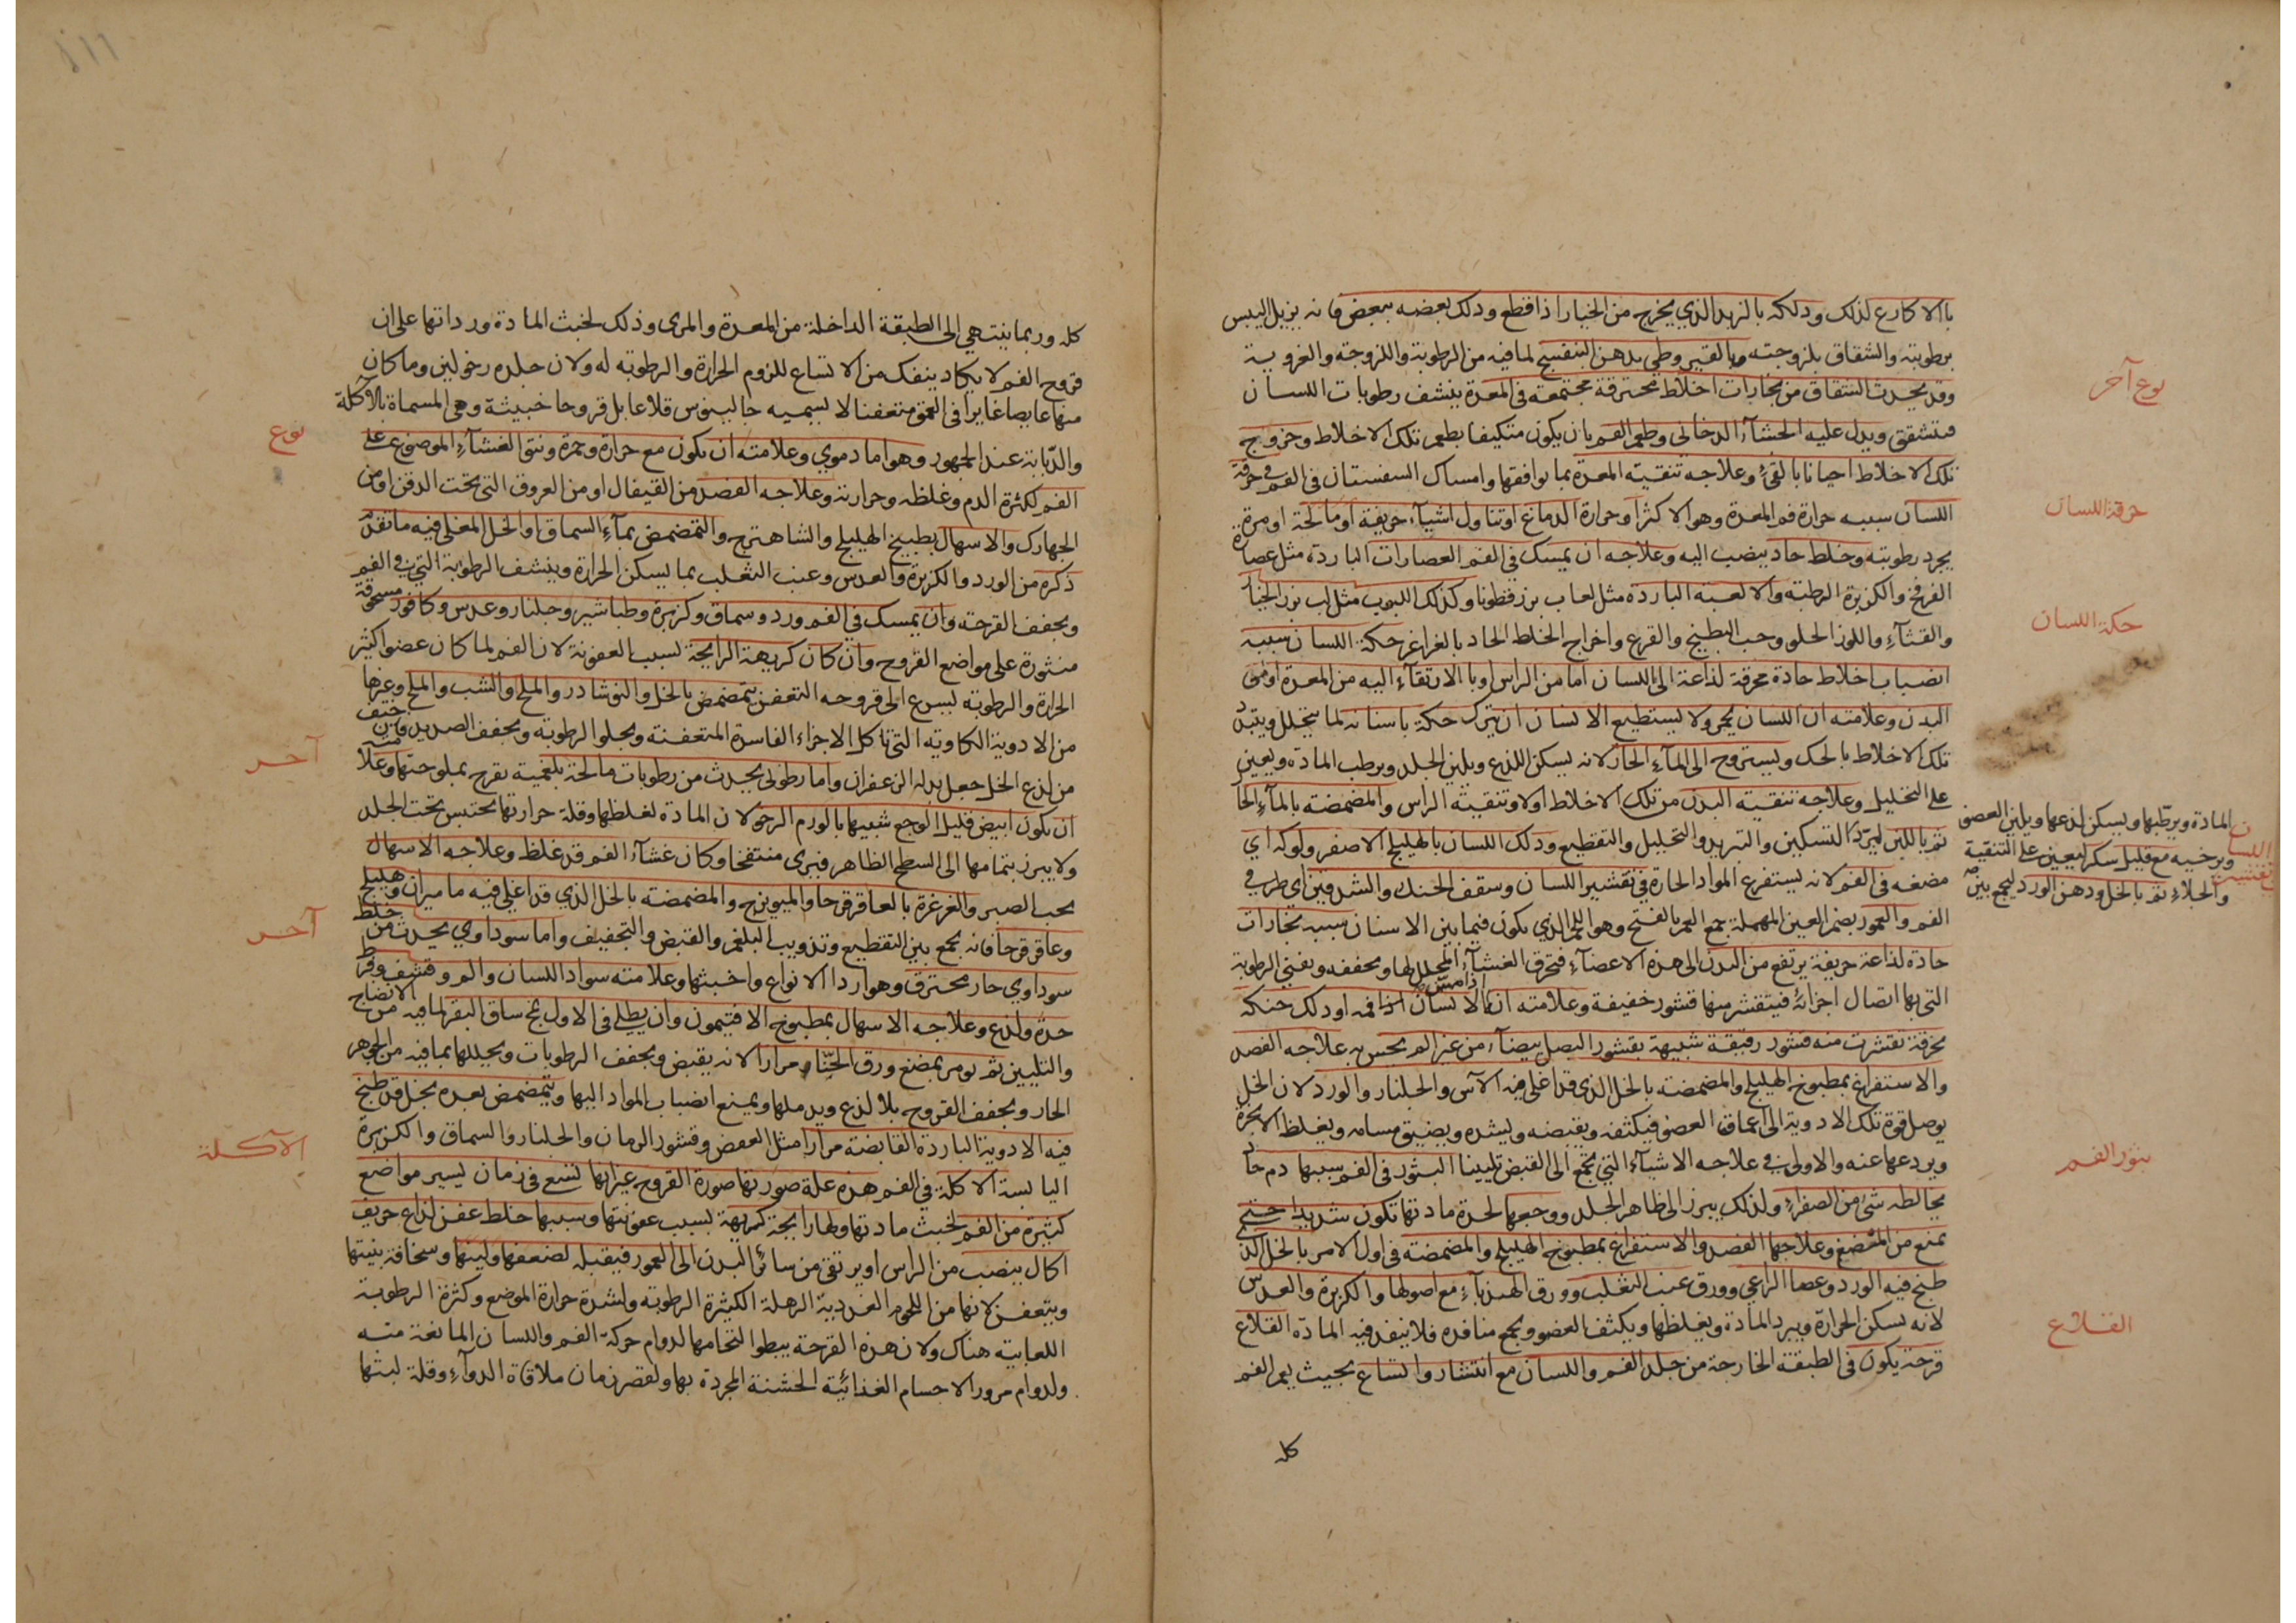 باالاكارع لذلك ودلكه بالزبد الذي يخرج من الخيار اذا قطع ودلك بعضه ببعض فانه يزيل اليبس
برطوبته والشقاق بلزوجته وبالقيروطي بدهن البنفسج لما فيه من الرطوبة واللزوجة والغروية
نوع آخر
وقد يحدث الشقاق من بخارات اخلاط محترقة مجتمعة في المعدة ينشف رطوبات اللسان
فتشقق ويدل عليه الجشاء الدخاني وطعم الفم بان يكون متكيفا بطعم تلك الاخلاط وخروج
تلك الاخلاط احيانا بالقئ وعلاجه تنقية المعدة بما يوافقها وامساك السفستان في الفم في حرقة
حرقة اللسان
اللسان سببه حرارة فم المعدة وهو الاكثر او حرارة الدماغ او تناول اشياء حريفة او مالحة او مرة
يجرد رطوبته وخلط حاد ينصب اليه وعلاجه ان يمسك في الفم العصارات الباردة مثل عصارة
الفرفخ والكزبرة الرطبة والالعبة الباردة مثل لعاب بزرقطونا وكذلك اللبوب مثل لب بزر الخيار
حكة اللسان
والقثاء واللوز الحلو وحب البطيخ والقرع واخراج الخلط الحاد بالغراغر حكة اللسان سببه
انصباب اخلاط حادة محرقة لذاعة الى اللسان اما من الراس او بالارتقاء اليه من المعدة او من
البدن وعلامته ان اللسان يحمر ولا يستطيع الانسان ان يترك حكة باسنانه لما يتخلل ويتبدد
تلك الاخلاط بالحك ويستروح الى الماء الحار لانه يسكن اللذع ويلين الجلد ويرطب المادة ويعين
على التحليل وعلاجه تنقية البدن من تلك الاخلاط اولا وتنقية الراس والمضمضة بالماء الحار
المادة ويرطبها ويسكن لذعها ويلين العضو
ويرخيه مع قليل سكر ليعين على التنقية
والجلاء ثم بالخل ودهن الورد ليجمع بين
ثم باللبن ليبرد التسكين والتبريد والتحليل والتقطيع ودلك اللسان بالهليلج الاصفر ولوكه اي
مضغه في الفم لانه يستفرغ المواد الحارة في تقشير اللسان وسقف الحنك والشدقين اي طرفي
الفم والعمور بضم العين المهملة جمع العمر بالفتح وهو اللحم الذي يكون فيما بين الاسنان سببه بخارات
حادة لذاعة حريفة يرتفع من البدن الى هذه الاعضاء فتحرق الغشاء المجلل لها ويجففه ويفني الرطوبة
التي بها اتصال اجزائه فيتقشر منها قشور خفيفة وعلامته ان الانسان اذا مس فمه او دلك حنكه
بخرقة تقشرت منه قشور رقيقة شبيهة بقشور البصل بيضاء من غير الم يحس به علاجه الفصد
والاستفراغ بمطبوخ الهليلج والمضمضة بالخل الذي قد اغلي فيه الآس والجلنار والورد لان الخل
يوصل قوة تلك الادوية الى اعماق العضو فيكثفه ويقبضه ويشده ويضيق مسامه ويغلظ الابخرة
بثور الفم
ويردعها عنه والاولى في علاجه الاشياء التي تجمع الى القبض تليينا البثور في الفم سببها دم حاد
يخالطه شئ من الصفراء ولذلك يبرز الى ظاهر الجلد ووجعها لحدة مادتها تكون شديدا حتى
يمنع من المضغ وعلاجها الفصد والاستفراغ بمطبوخ الهليلج والمضمضة في اول الامر بالخل الذي
طبخ فيه الورد وعصا الراعي وورق عنب الثعلب وورق الهندباء مع اصولها والكزبرة والعدس
القلاع
لانه يسكن الحرارة ويبرد المادة ويغلظها ويكثف العضو ويجمع منافذه فلا ينفد فيه المادة القلاع
قرحة يكون في الطبقة الخارجة من جلد الفم واللسان مع انتشار واتساع بحيث يعم الفم
كله
كله وربما ينتهي الى الطبقة الداخلة من المعدة والمرى وذلك لخبث المادة ورداتها على ان
قروح الفم لا يكاد ينفك من الاتساع للزوم الحرارة والرطوبة له ولان جلده رخو لين وما كان
منها غايرا في العمق متعفنا لا يسميه جالينوس قلاعا بل قروحا خبيثة وهي المسماة بالآكلة
نوع
والذبابة عند الجمهور وهو اما دموي وعلامته ان يكون مع حرارة وحمرة ونتو الغشاء الموضوع على
الفم لكثرة الدم وغلظه وحرارته وعلاجه الفصد من القيفال او من العروق التي تحت الذقن او من
الجهارك والاسهال بطبيخ الهليلج والشاهترج والتمضمض بماء السماق او الخل المغلي فيه ما تقدم
ذكره من الورد والكزبرة والعدس وعنب الثعلب بما يسكن الحرارة وينشف الرطوبة التي في الفم
ويجفف القرحة وان يمسك في الفم ورد وسماق وكزبرة وطباشير وجلنار وعدس وكافور مسحوقة
منثورة على مواضع القروح وان كان كريهة الرايحة لسبب العفونة لان الفم لما كان عضوا كثير
الحرارة والرطوبة يسرع الى قروحه التعفن يتمضمض بالخل والنوشادر والملح والشب والملح وغيرها
من الادوية الكاوية التي تاكل الاجزاء الفاسدة المتعفنة ويجلو الرطوبة ويجفف الصديد وان خيف
آخر
من لذع الخل جعل بدله الزعفران واما رطوبي يحدث من رطوبات مالحة بلغمية تقرح بملوحتها وعلامته
ان يكون ابيض قليل الوجع شبيها بالورم الرخو لان المادة لغلظها وقلة حرارتها يحتبس تحت الجلد
ولا يبرز بتمامها الى السطح الظاهر فيرى منتفخا وكان غشاء الفم قد غلظ وعلاجه الاسهال
بحب الصبر والغرغرة بالعاقرقرحا والميويزج والمضمضة بالخل الذي قد اغلي فيه ماميران وهليلج
آخر
وعاقرقرحا فانه يجمع بين التقطيع وتذويب البلغم والقبض والتجفيف واما سوداوي يحدث من خلط
سوداوي حار محترق وهو اردا الانواع واخبثها وعلامته سواد اللسان والم وقشف وفرط
حدة ولذع وعلاجه الاسهال بمطبوخ الافتيمون وان يطلى في الاول بمخ ساق البقر لما فيه من الانضاج
والتليين ثم يومر بمضغ ورق الحناء مرارا لانه يقبض ويجفف الرطوبات ويحللها بما فيه من الجوهر
الحار ويجفف القروح بلا لذع ويدملها ويمنع انصباب المواد اليها ويتمضمض بعده بخل قد طبخ
فيه الادوية الباردة القابضة مرارا مثل العفص وقشور الرمان والجلنار والسماق والكزبرة
الآكلة
اليابسة الاكلة في الفم هذه علة صورتها صورة القروح غير انها تسع في زمان يسير مواضع
كثيرة من الفم لخبث مادتها ولها رايحة كريهة بسبب عفونتها وسببها خلط عفن لذاع حريف
اكال ينصب من الراس او يرتقي من سائر البدن الى العمور فيقبله لضعفها ولينها وسخافة بنيتها
ويتعفن لانها من اللحوم الغددية الرهلة الكثيرة الرطوبة ولشدة حرارة الموضع وكثرة الرطوبة
اللعابية هناك ولان هذه القرحة يبطو التحامها لدوام حركة الفم واللسان المانعة منه
ولدوام مرور الاجسام الغذائية الخشنة المجردة بها ولقصر زمان ملاقاة الدواء وقلة لبثها